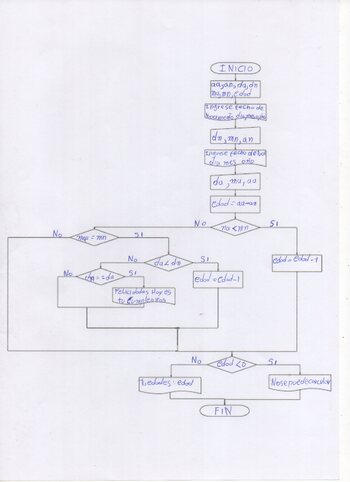 INICIO
aa, an, da, dn
ma, mn, edad
Ingrese fecha de
nacimiento dia, mes, año
dn, mn, an
Ingrese fecha de hoy
dia mes año
da, ma, aa
edad = aa-an
No
ma < mn
Si
No
ma = mn
Si
edad = edad - 1
No
da < dn
Si
No
dn = da
Si
edad = edad-1
Felicidades Hoy es
tu cumpleaños
No
edad < 0
Si
Tu edad es: edad
No se puede calcular
FIN